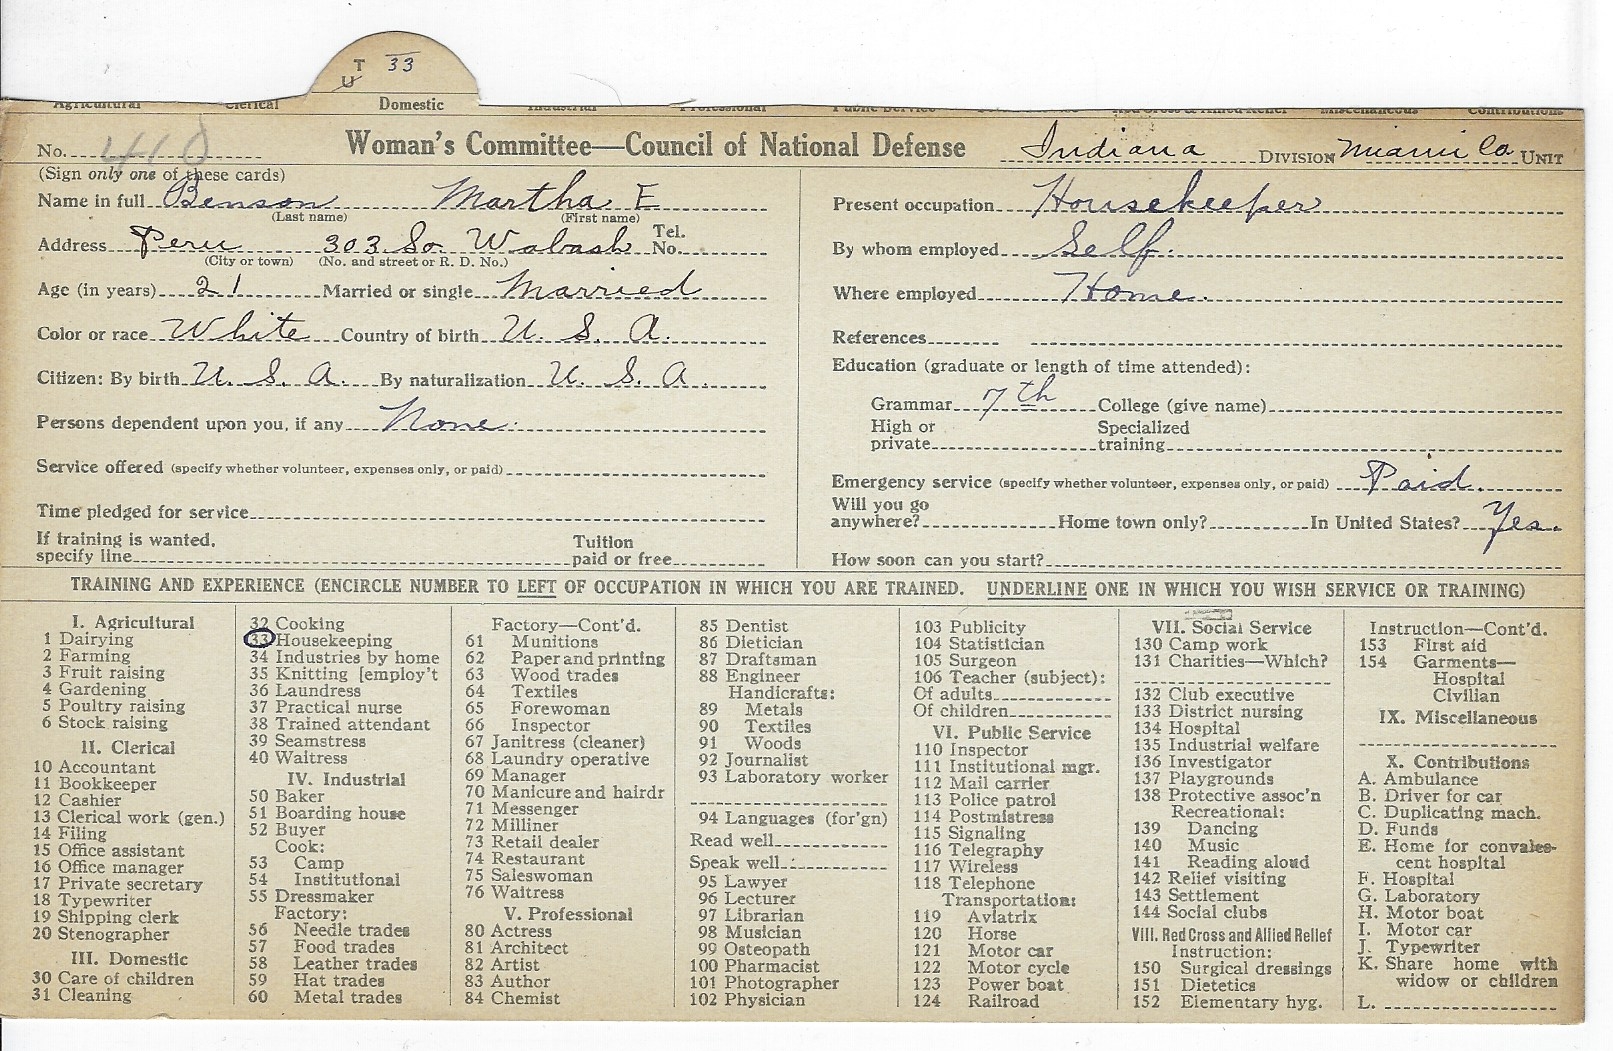 T 33
U
Agricultural Clerical Domestic Industrial Professional Public Service Red Cross & Allied Relief Miscellaneous Contributions
No. 410 Woman's Committee—Council of National Defense Indiana DIVISION Miami Co UNIT
(Sign only one of these cards)
Name in full Benson Martha E
(Last name) (First name)
Address Peru 303 So. Wabash Tel. No.
(City or town) (No. and street or R. D. No.)
Age (in years) 21 Married or single Married
Color or race White Country of birth U. S. A.
Citizen: By birth U. S. A. By naturalization U. S. A.
Persons dependent upon you, if any None.
Service offered (specify whether volunteer, expenses only, or paid)
Time pledged for service
If training is wanted, Tuition
specify line paid or free
Present occupation Housekeeper
By whom employed Self.
Where employed Home.
References
Education (graduate or length of time attended):
Grammar 7th College (give name)
High or Specialized
private training
Emergency service (specify whether volunteer, expenses only, or paid) Paid.
Will you go
anywhere? Home town only? In United States? Yes.
How soon can you start?
TRAINING AND EXPERIENCE (ENCIRCLE NUMBER TO LEFT OF OCCUPATION IN WHICH YOU ARE TRAINED. UNDERLINE ONE IN WHICH YOU WISH SERVICE OR TRAINING)
I. Agricultural
1 Dairying
2 Farming
3 Fruit raising
4 Gardening
5 Poultry raising
6 Stock raising
II. Clerical
10 Accountant
11 Bookkeeper
12 Cashier
13 Clerical work (gen.)
14 Filing
15 Office assistant
16 Office manager
17 Private secretary
18 Typewriter
19 Shipping clerk
20 Stenographer
III. Domestic
30 Care of children
31 Cleaning
32 Cooking
33 Housekeeping
34 Industries by home
35 Knitting [employ't
36 Laundress
37 Practical nurse
38 Trained attendant
39 Seamstress
40 Waitress
IV. Industrial
50 Baker
51 Boarding house
52 Buyer
Cook:
53 Camp
54 Institutional
55 Dressmaker
Factory:
56 Needle trades
57 Food trades
58 Leather trades
59 Hat trades
60 Metal trades
Factory—Cont'd.
61 Munitions
62 Paper and printing
63 Wood trades
64 Textiles
65 Forewoman
66 Inspector
67 Janitress (cleaner)
68 Laundry operative
69 Manager
70 Manicure and hairdr
71 Messenger
72 Milliner
73 Retail dealer
74 Restaurant
75 Saleswoman
76 Waitress
V. Professional
80 Actress
81 Architect
82 Artist
83 Author
84 Chemist
85 Dentist
86 Dietician
87 Draftsman
88 Engineer
Handicrafts:
89 Metals
90 Textiles
91 Woods
92 Journalist
93 Laboratory worker
94 Languages (for'gn)
Read well
Speak well
95 Lawyer
96 Lecturer
97 Librarian
98 Musician
99 Osteopath
100 Pharmacist
101 Photographer
102 Physician
103 Publicity
104 Statistician
105 Surgeon
106 Teacher (subject):
Of adults
Of children
VI. Public Service
110 Inspector
111 Institutional mgr.
112 Mail carrier
113 Police patrol
114 Postmistress
115 Signaling
116 Telegraphy
117 Wireless
118 Telephone
Transportation:
119 Aviatrix
120 Horse
121 Motor car
122 Motor cycle
123 Power boat
124 Railroad
VII. Social Service
130 Camp work
131 Charities—Which?
132 Club executive
133 District nursing
134 Hospital
135 Industrial welfare
136 Investigator
137 Playgrounds
138 Protective assoc'n
Recreational:
139 Dancing
140 Music
141 Reading aloud
142 Relief visiting
143 Settlement
144 Social clubs
VIII. Red Cross and Allied Relief
Instruction:
150 Surgical dressings
151 Dietetics
152 Elementary hyg.
Instruction—Cont'd.
153 First aid
154 Garments—
Hospital
Civilian
IX. Miscellaneous
X. Contributions
A. Ambulance
B. Driver for car
C. Duplicating mach.
D. Funds
E. Home for convales-
cent hospital
F. Hospital
G. Laboratory
H. Motor boat
I. Motor car
J. Typewriter
K. Share home with
widow or children
L.